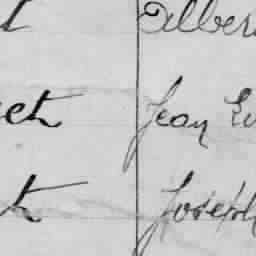 t Alber
ech Jean Eu
t Joseph